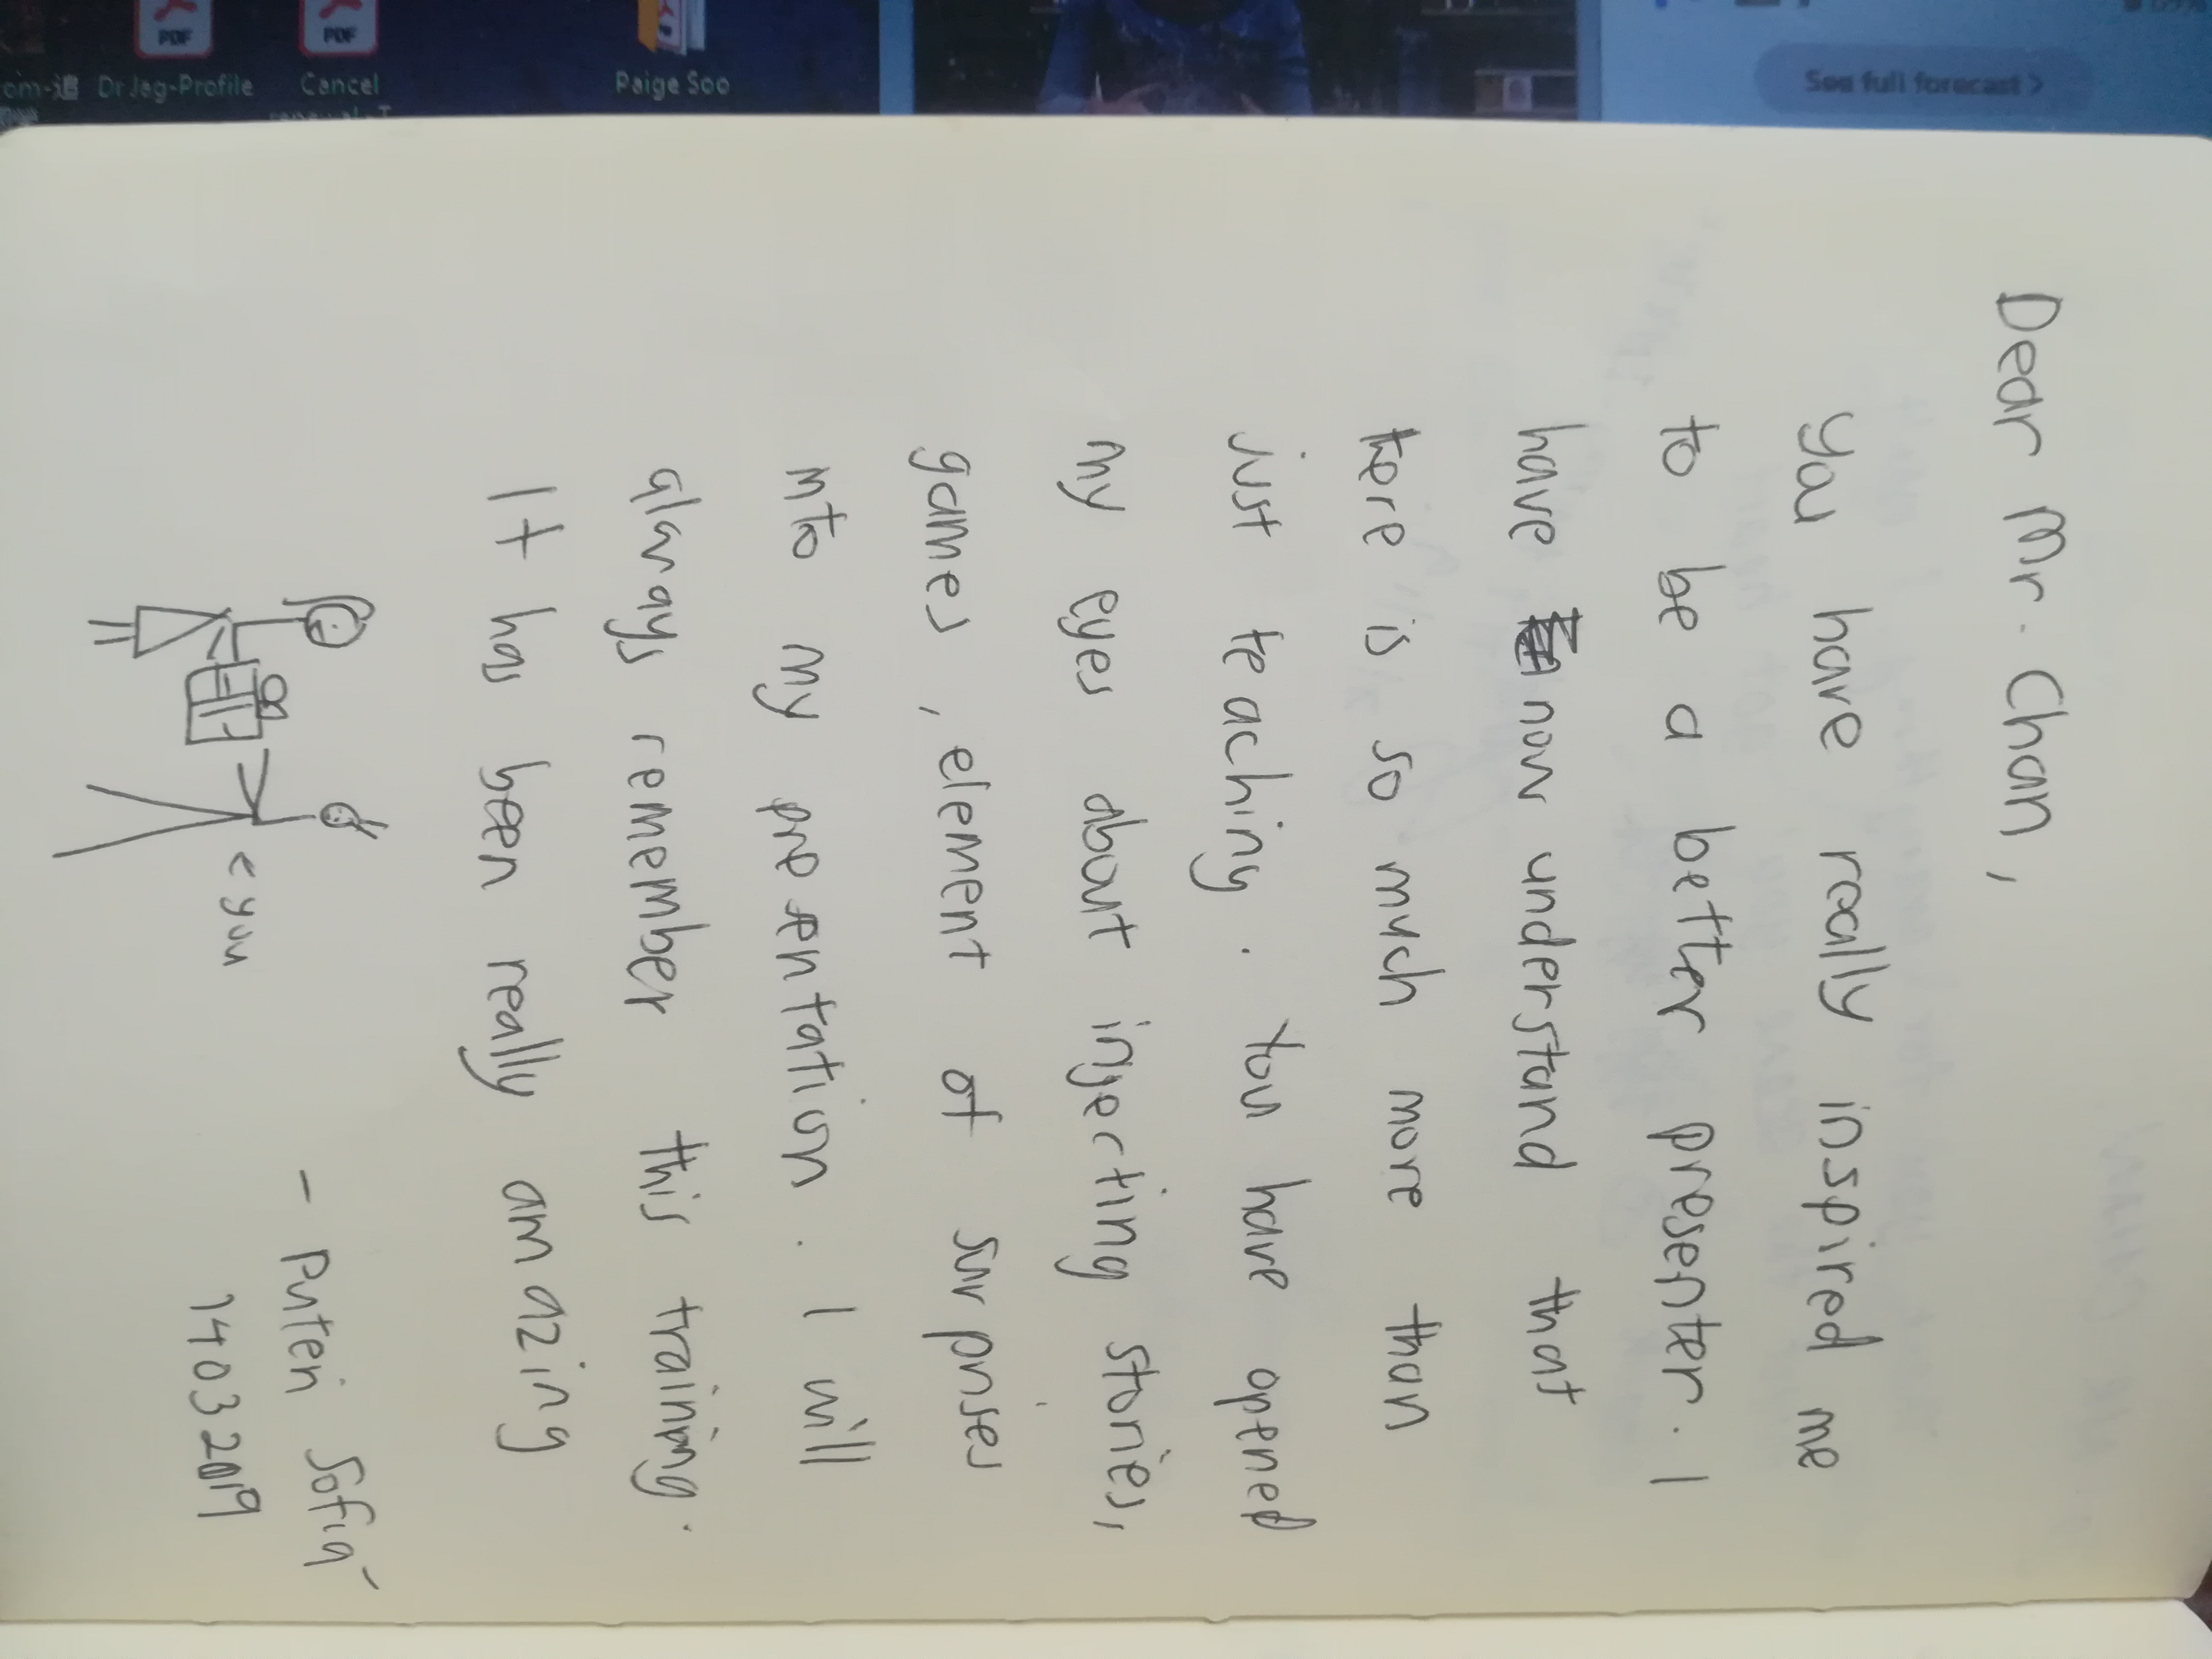 Dear Mr. Chan,
you have really inspired me
to be a better presenter. I
have now understand that
tere is so much more than
just teaching. You have opened
my eyes about injecting stories,
games, element of surprises
into my presentation. I will
always remember this training.
It has been really amazing
< you
- Puteri Sofia -
14032019
Dr Jag-Profile
Cancel
Paige Soo
See full forecast >
PDF
PDF